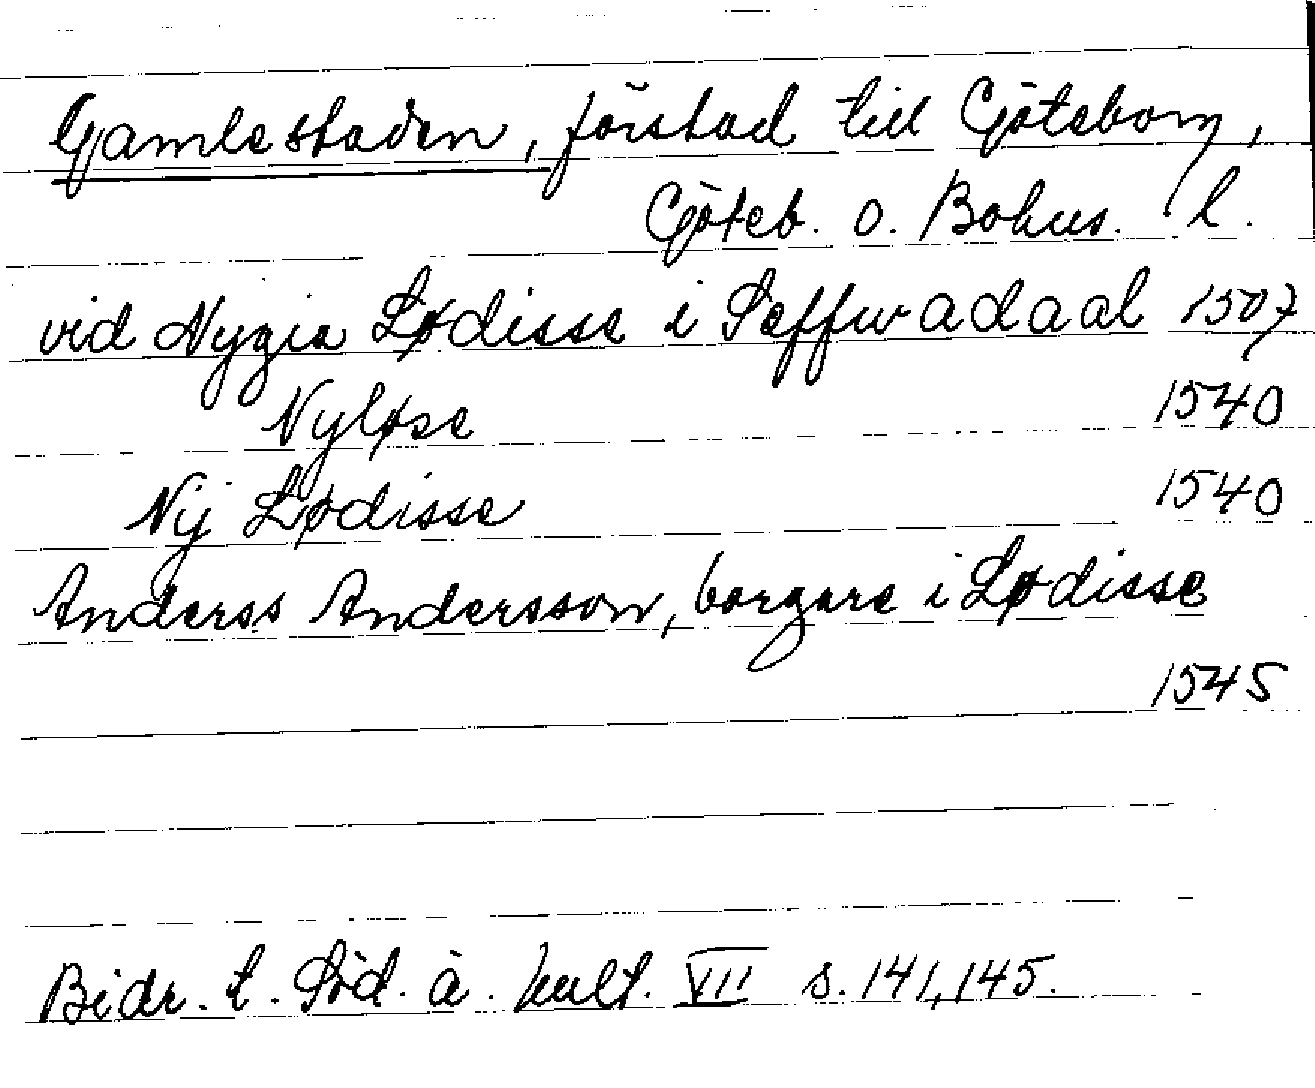 Gamlestaden, förstad till Göteborg,
Göteb. o. Bohus. l.
vid Nygia Lødisse i Seffwadaal 1507
Nyløse 1540
Nij Lødisse 1540
Anderss Andersson, borgare i Lødisse
1545
Bidr. t. Söd. ä. kult. VII s. 141, 145.